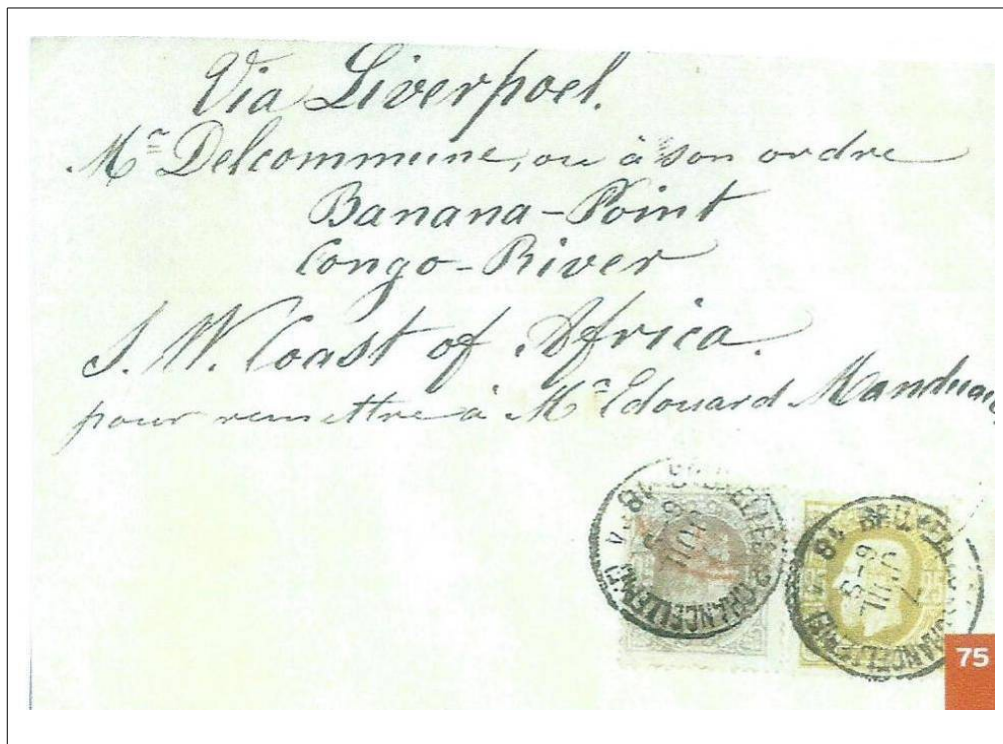 Via Liverpoel.
Mr Delcommune, ou à son ordre
Banana-Point
Congo-River
S. W. Coast of Africa.
pour remettre à Mr Edouard
BRUXELLES (CHANCELLERIE)
5-6
JUIL
18
BRUXELLES (CHANCELLERIE)
7 JUIL
5-6
18
25
75